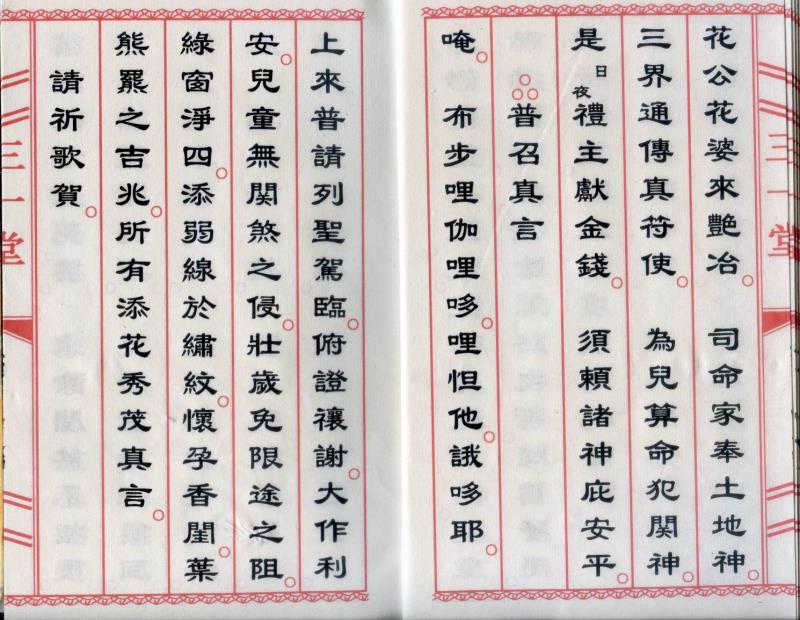 花公花婆來艷冶。司命家奉土地神
三界通傳真符使。為兒算命犯關神。
是日夜禮主獻金錢。須賴諸神庇安平。
普召真言
唵。布步哩伽哩哆。哩怛他。誐哆耶。
上來普請列聖駕臨。俯證禳謝。大作利
安。兒童無關煞之侵。壯歲免限途之阻。
綠窗淨四。添弱線於繡紋。懷孕香閨。葉
熊羆之吉兆。所有添花秀茂真言。
請祈歌賀。
三一堂
三一堂